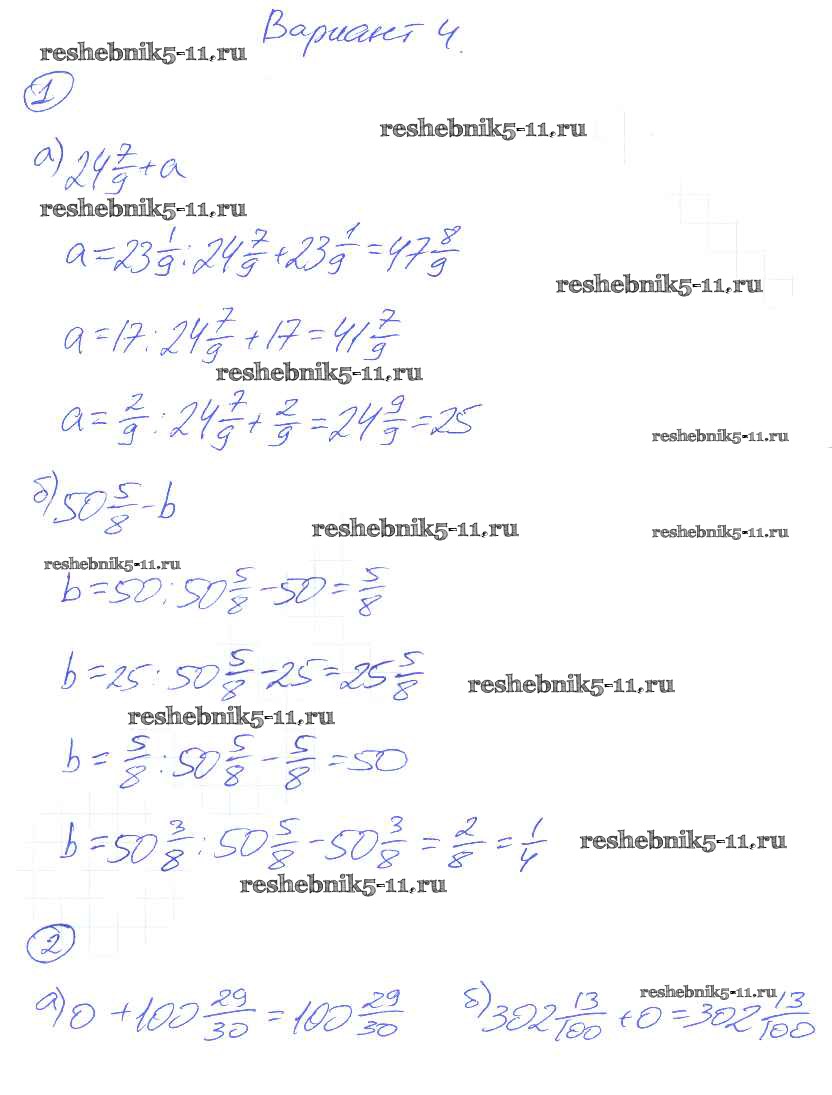 Вариант 4.
reshebnik5-11.ru
1
reshebnik5-11.ru
а) 24 7/9 + a
reshebnik5-11.ru
a = 23 1/9 : 24 7/9 + 23 1/9 = 47 8/9
reshebnik5-11.ru
a = 17 : 24 7/9 + 17 = 41 7/9
reshebnik5-11.ru
a = 2/9 : 24 7/9 + 2/9 = 24 9/9 = 25
reshebnik5-11.ru
б) 50 5/8 - b
reshebnik5-11.ru
reshebnik5-11.ru
reshebnik5-11.ru
b = 50 : 50 5/8 - 50 = 5/8
b = 25 : 50 5/8 - 25 = 25 5/8
reshebnik5-11.ru
reshebnik5-11.ru
b = 5/8 : 50 5/8 - 5/8 = 50
b = 50 3/8 : 50 5/8 - 50 3/8 = 2/8 = 1/4
reshebnik5-11.ru
reshebnik5-11.ru
2
reshebnik5-11.ru
а) 0 + 100 29/30 = 100 29/30
б) 302 13/100 + 0 = 302 13/100